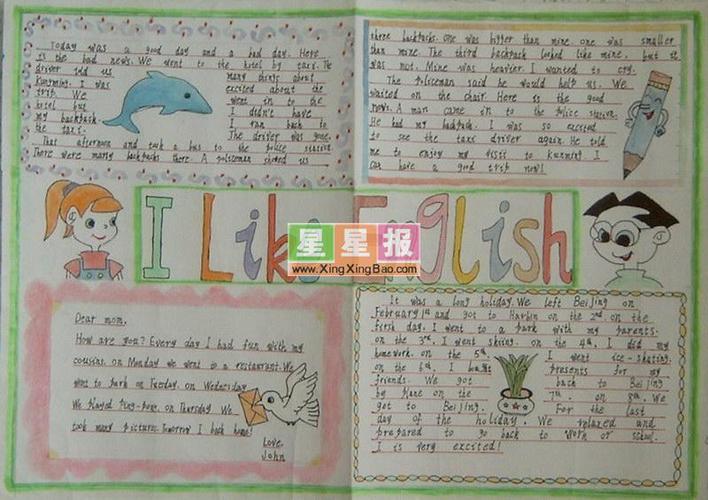 Today was a good day and a bad day. Here
is the bad news. We went to the hotel by taxi. The
driver told us many things about
Kunming. I was excited about the
trip. We went in to the
hotel but I didn't have
my backpack. I ran back to
the taxi. The driver was gone.
That afternoon and took a bus to the police station.
There were many backpacks there. A policeman showed us
three backpacks. One was bigger than mine. one was smaller
than mine. The third backpack looked like mine, but it
was not. Mine was heavier. I wanted to cry.
The policeman said he would help us. We
waited on the chair. Here is the good
news. A man came in to the police station.
He had my backpack. I was so excited
to see the taxi driver again. He told
me to enjoy my visit to Kunming. I
can have a good trip now!
I Like English
星星报
www.XingXingBao.com
Dear mom,
How are you? Every day I had fun with my
cousins. on Monday we went to a restaurant. We
went to park on Tuesday. on Wednesday
We played Ping-Pong. on Thursday We
took many pictures. Tomorrow I back home!
Love,
John
It was a long holiday. We left Beijing on
February 1st and got to Harbin on the 2nd on the
first day. I went to a park with my parents.
on the 3rd. I went skiing. on the 4th. I did my
homework. on the 5th. I went ice-skating.
on the 6th. I bought presents for my
friends. We got back to Beijing
by plane on the 7th. on 8th. We
got to Beijing. For the last
day of the holiday. We relaxed and
prepared to go back to work or school.
I is very excited!